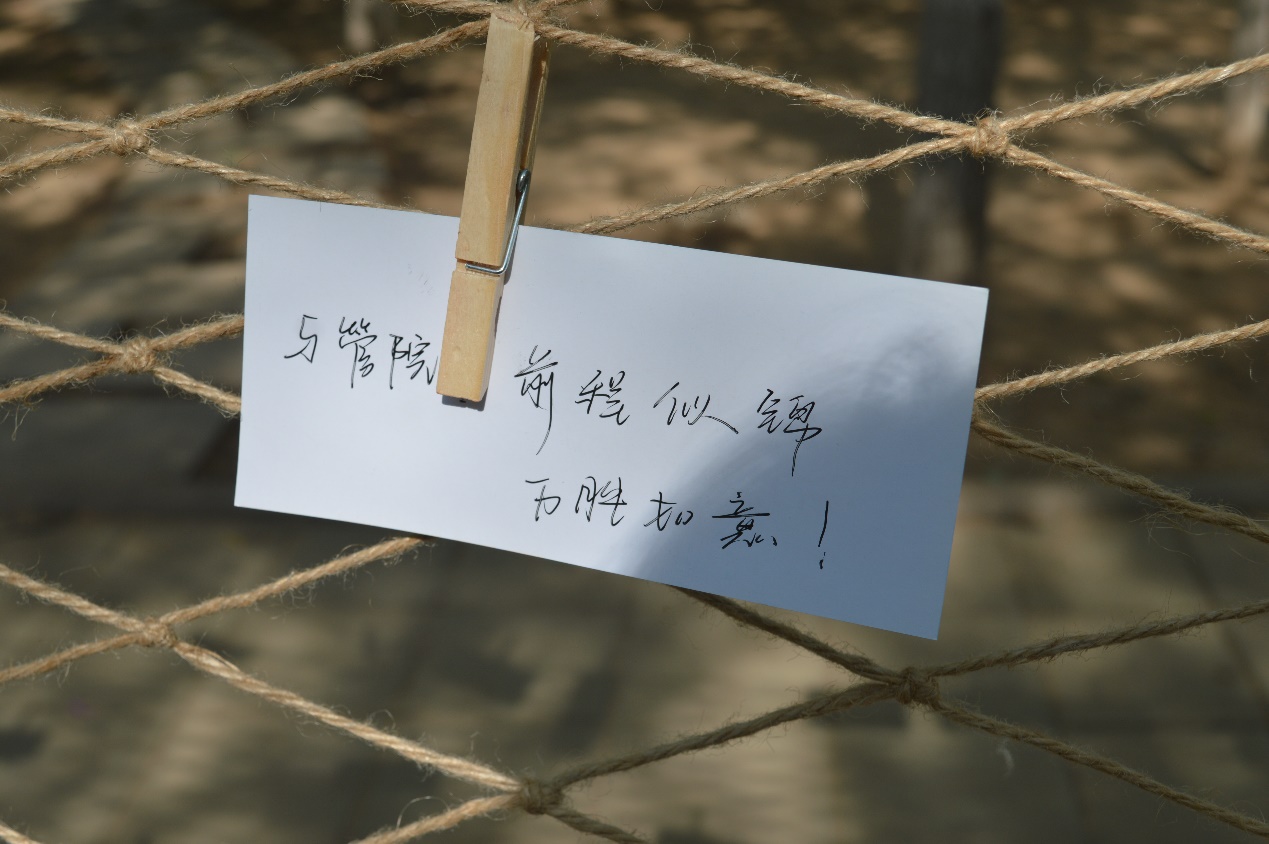 与管院 前程似锦
万胜如意！